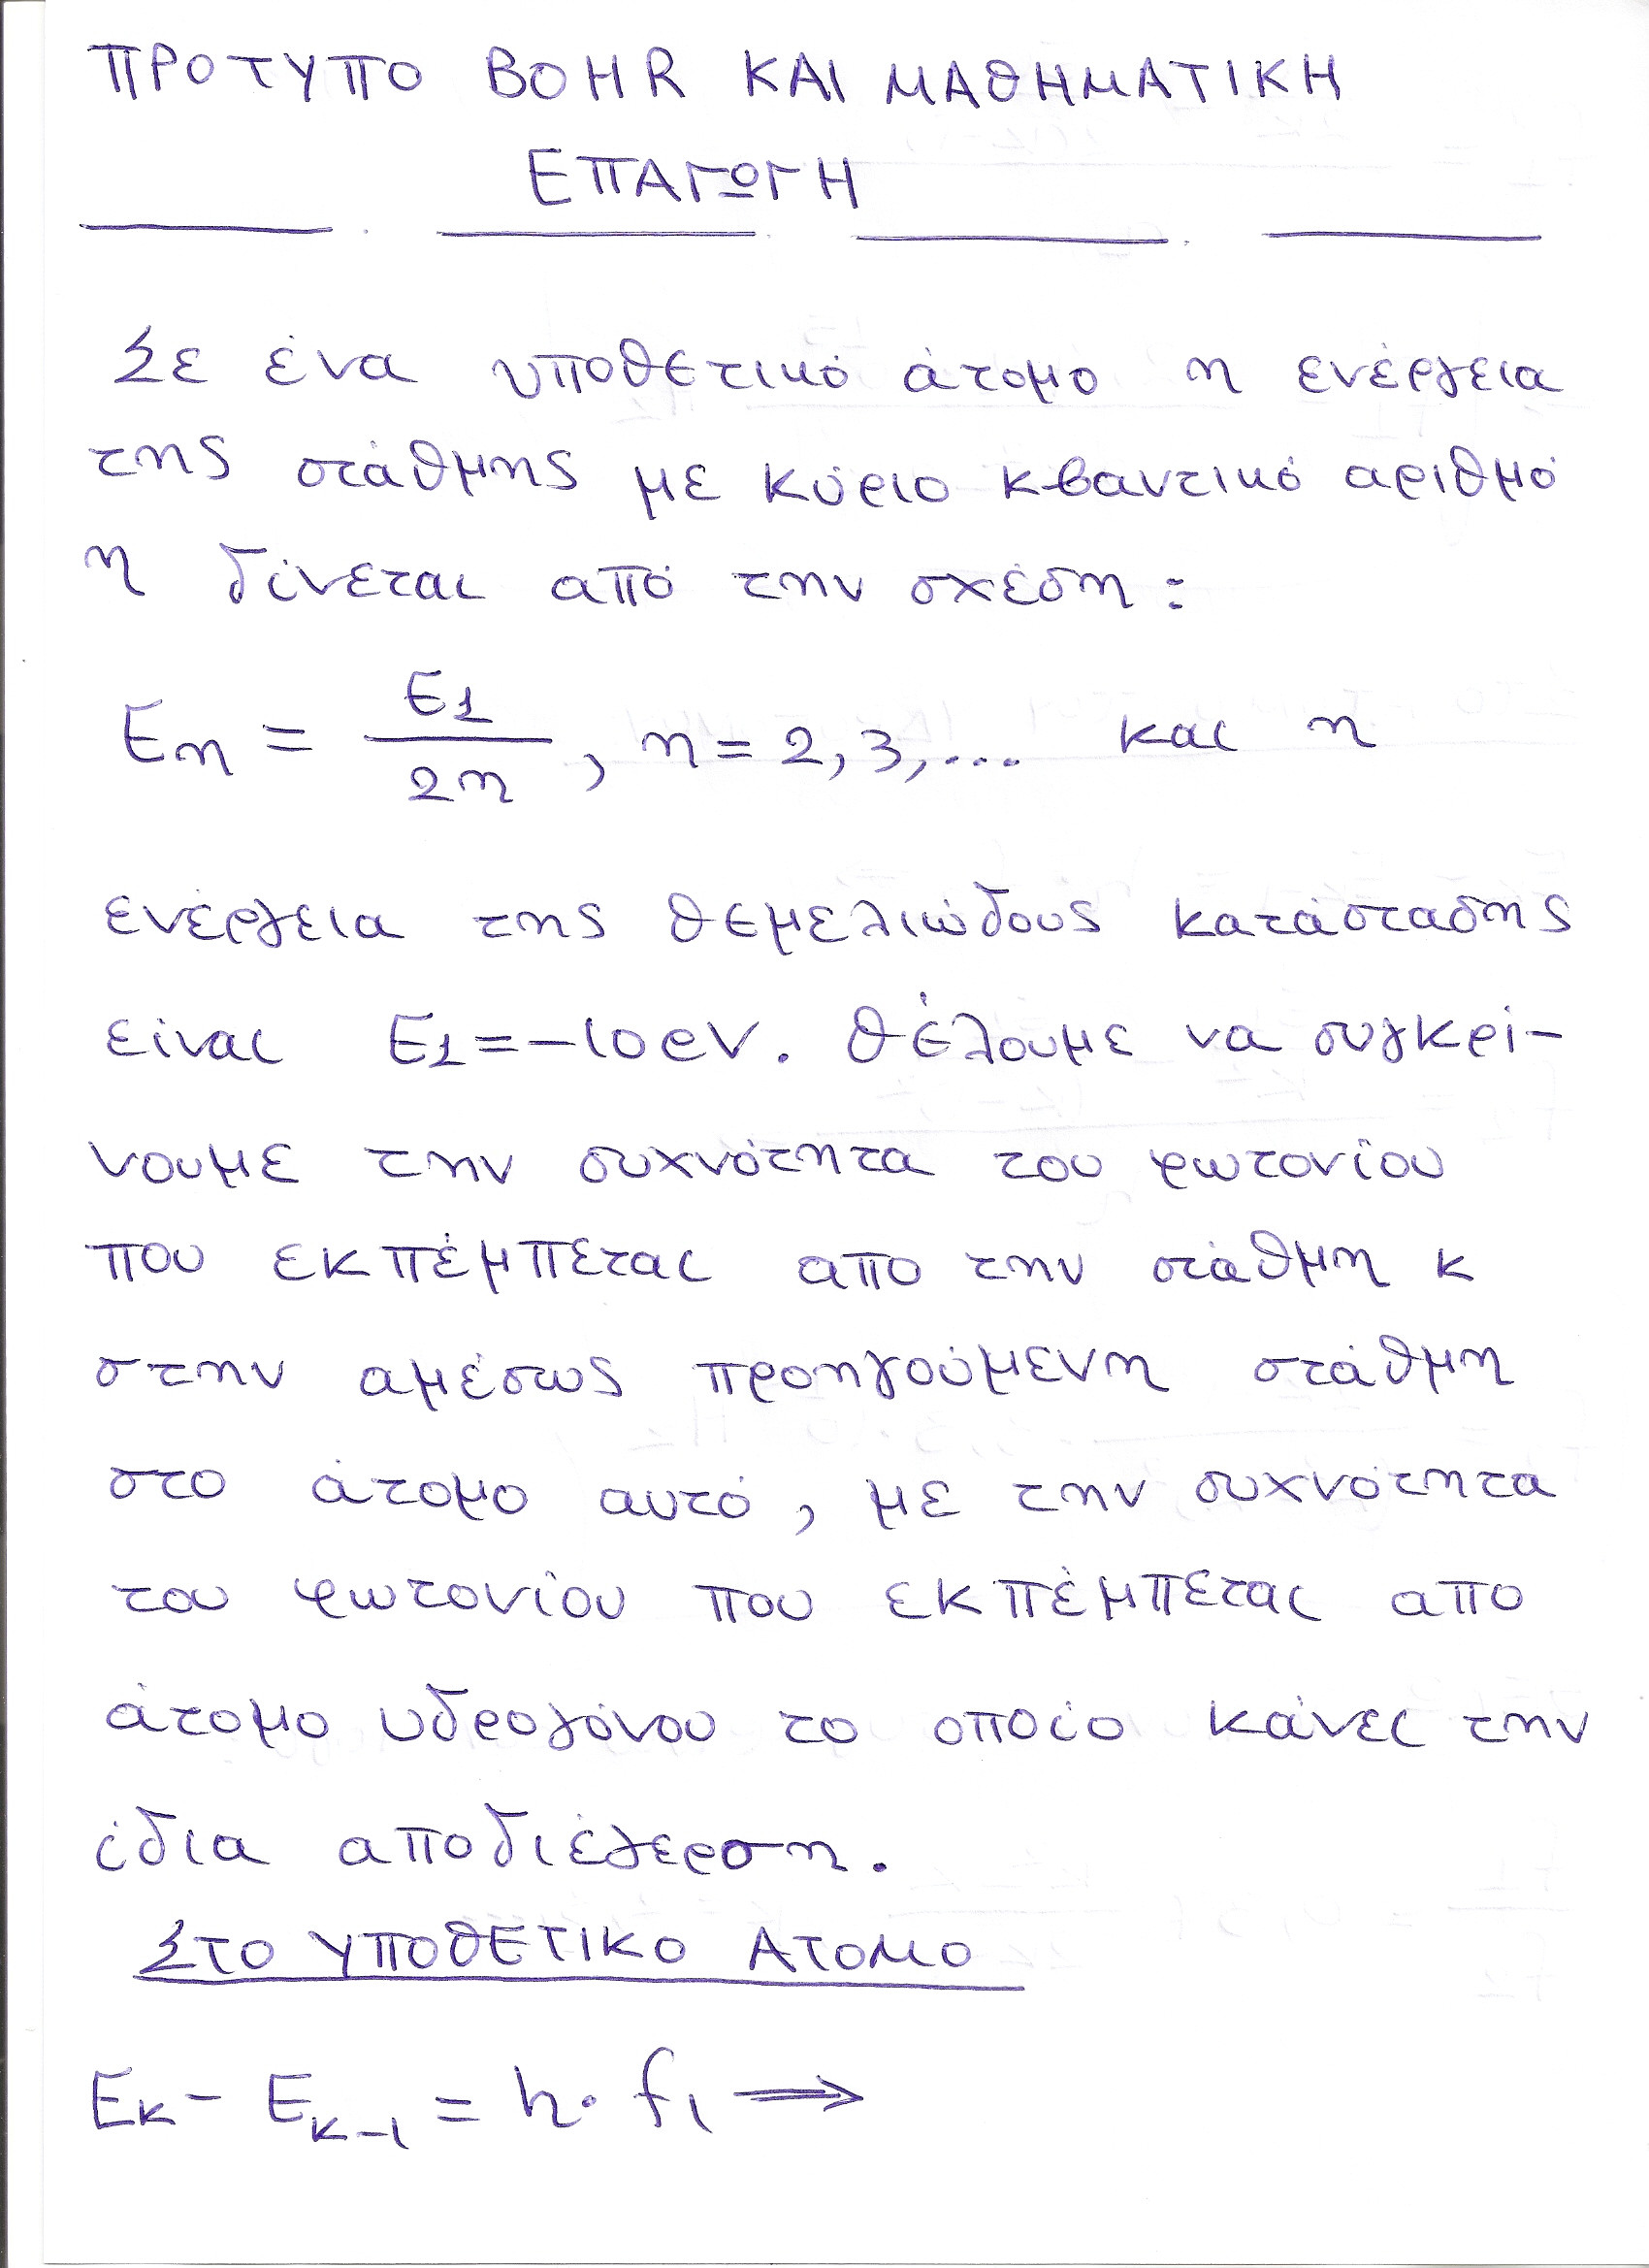 ΠΡΟΤΥΠΟ BOHR ΚΑΙ ΜΑΘΗΜΑΤΙΚΗ
ΕΠΑΓΩΓΗ
Σε ένα υποθετικό άτομο η ενέργεια
της στάθμης με κύριο κβαντικό αριθμό
n δίνεται από την σχέση:
En = E1/2n, n = 2, 3, ... και η
ενέργεια της θεμελιώδους κατάστασης
είναι E1 = -10eV. Θέλουμε να συγκρί-
νουμε την συχνότητα του φωτονίου
που εκπέμπεται απο την στάθμη κ
στην αμέσως προηγούμενη στάθμη
στο άτομο αυτό, με την συχνότητα
του φωτονίου που εκπέμπεται απο
άτομο υδρογόνου το οποίο κάνει την
ίδια αποδιέγερση.
ΣΤΟ ΥΠΟΘΕΤΙΚΟ ΑΤΟΜΟ
Eκ - Eκ-1 = h · f1 ⟹